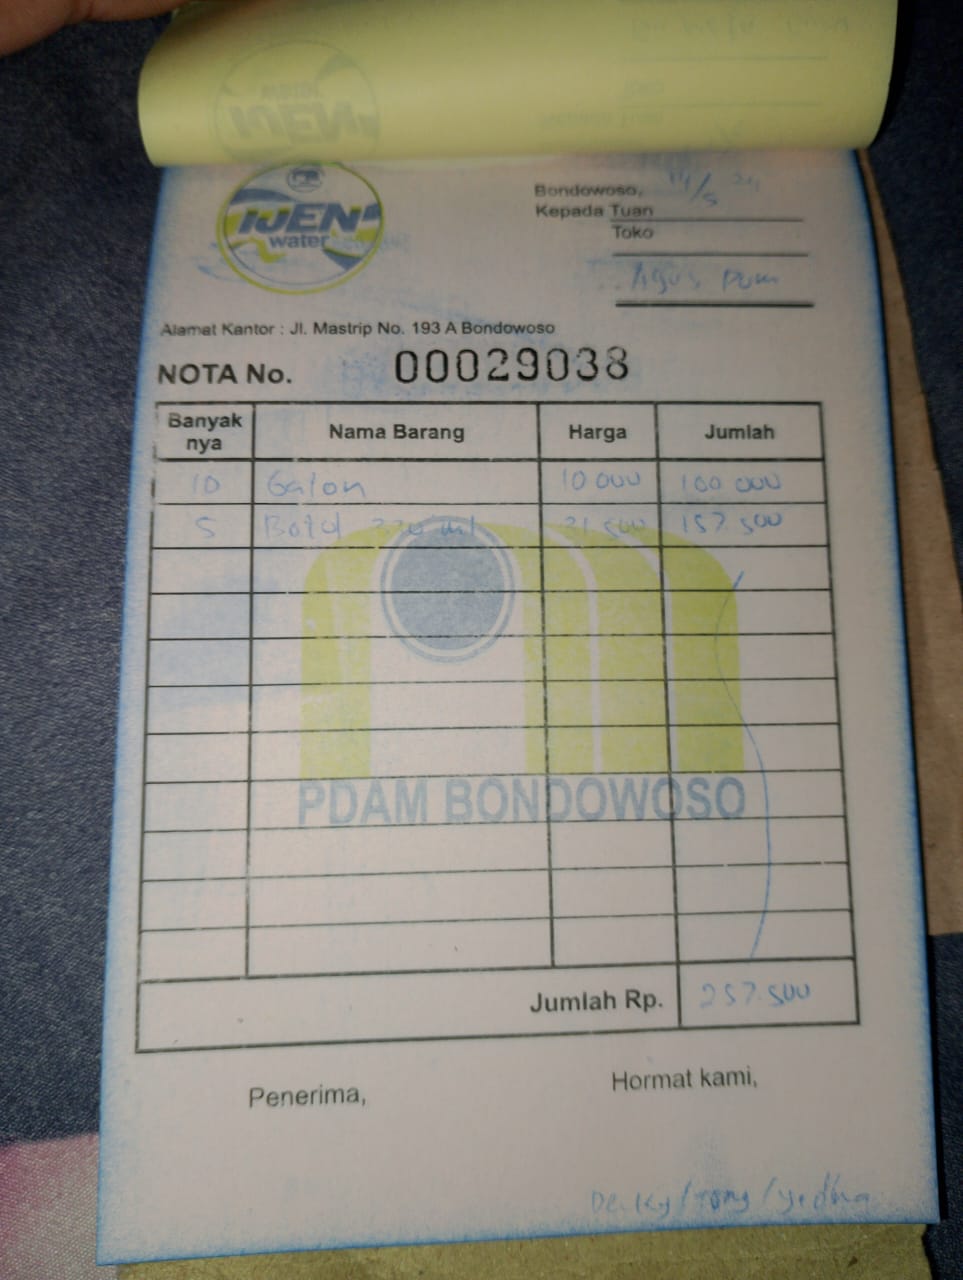 IJEN
water
Bondowoso,
Kepada Tuan
Toko
Agus pdm
Alamat Kantor : Jl. Mastrip No. 193 A Bondowoso
NOTA No. 00029038
Banyak nya Nama Barang Harga Jumlah
10 Galon 10 000 100 000
5 Botol 31 500 157.500
PDAM BONDOWOSO
Jumlah Rp. 257.500
Penerima, Hormat kami,